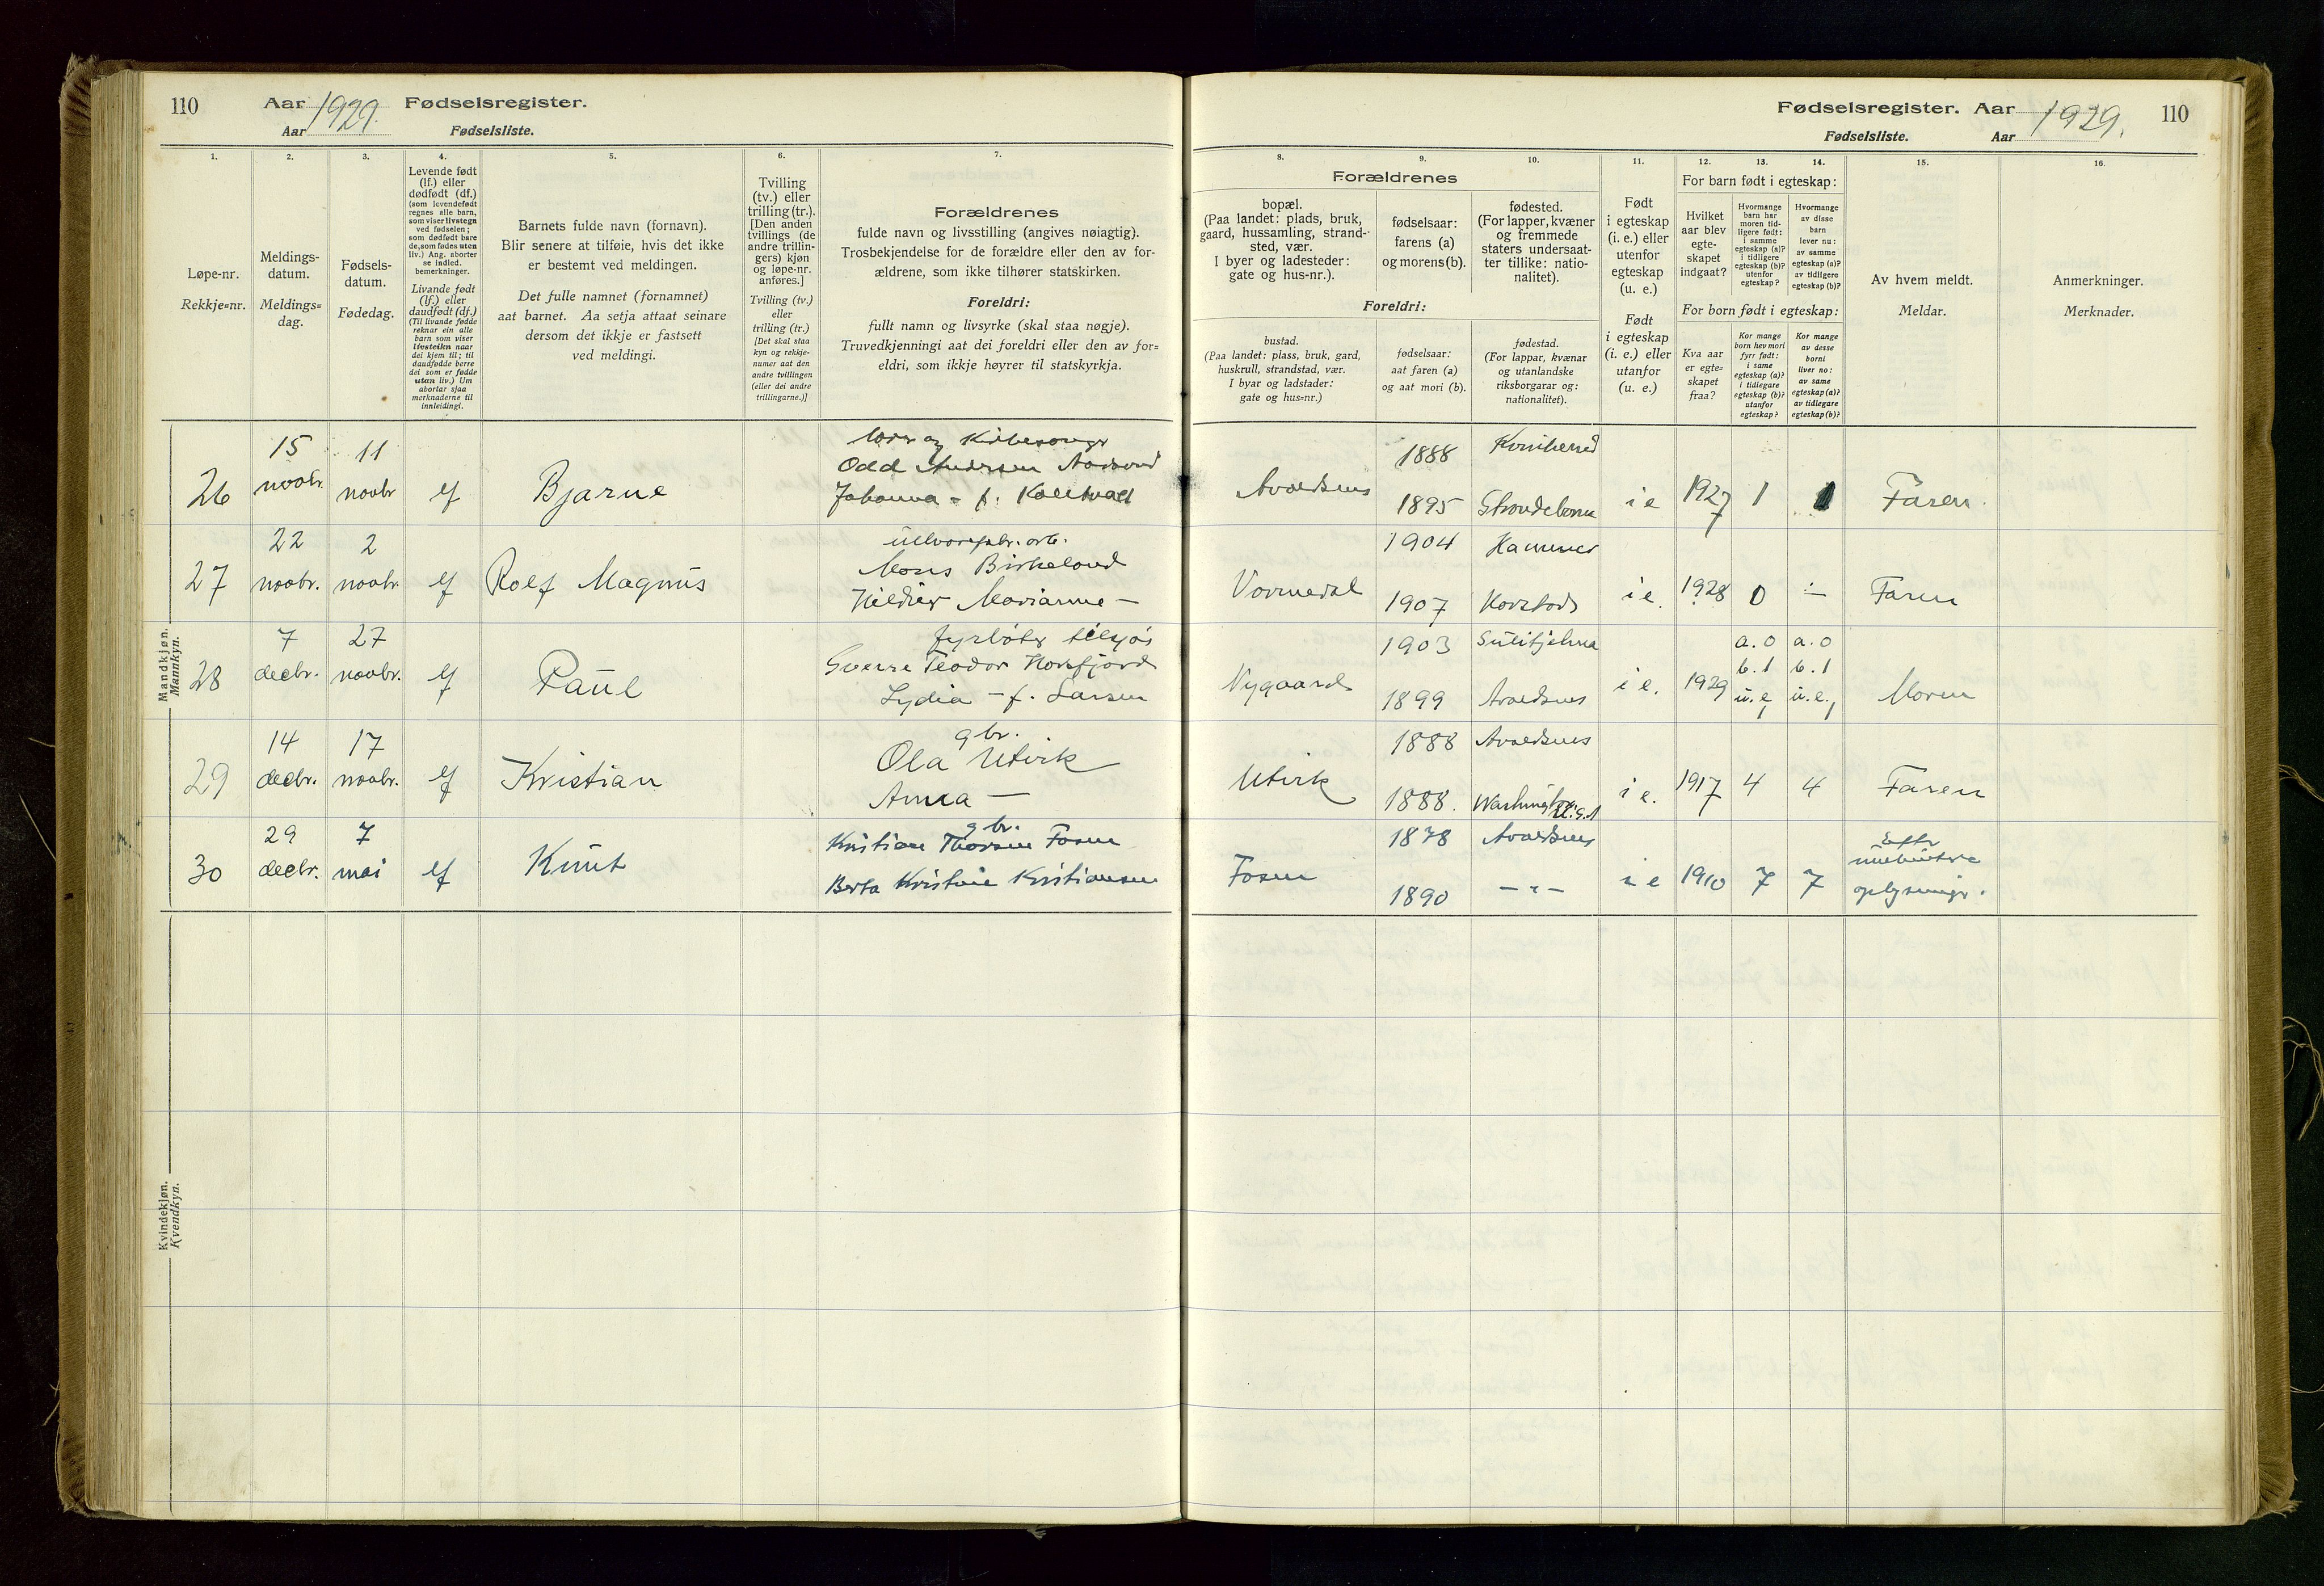 110 Aar 1929. Fødselsregister.
Aar Fødselsliste.
Fødselsregister. Aar 1929. 110
Fødselsliste. Aar
1. 2. 3. 4. 5. 6. 7.
Løpe-nr.
Rekkje=nr.
Meldings-
datum.
Meldings=
dag.
Fødsels-
datum.
Fødedag.
Levende født
(lf.) eller
dødfødt (df.)
(som levendefødt
regnes alle barn,
som viser livstegn
ved fødselen;
som dødfødt bare
de, som fødes uten
liv.) Ang. aborter
se indled.
bemerkninger.
Livande født
(lf.) eller
daudfødt (df.)
(Til livande fødde
reknar ein alle
barn som viser
livsteikn naar
dei kjem til; til
daudfødde berre
dei som er fødde
utan liv.) Um
abortar sjaa
merknaderne til
innleidingi.
Barnets fulde navn (fornavn).
Blir senere at tilføie, hvis det ikke
er bestemt ved meldingen.
Det fulle namnet (fornamnet)
aat barnet. Aa setja attaat seinare
dersom det ikkje er fastsett
ved meldingi.
Tvilling
(tv.) eller
trilling (tr.).
[Den anden
tvillings (de
andre trillin-
gers) kjøn
og løpe-nr.
anføres.]
Tvilling (tv.)
eller
trilling (tr.)
[Det skal staa
kyn og rekkje-
numer aat den
andre tvillingen
(eller dei andre
trillingarne.)]
Forældrenes
fulde navn og livsstilling (angives nøiagtig).
Trosbekjendelse for de forældre eller den av for-
ældrene, som ikke tilhører statskirken.
Foreldri:
fullt namn og livsyrke (skal staa nøgje).
Truvedkjenningi aat dei foreldri eller den av for=
eldri, som ikkje høyrer til statskyrkja.
8. 9. 10. 11. 12. 13. 14. 15. 16.
Forældrenes
bopæl.
(Paa landet: plads, bruk,
gaard, hussamling, strand-
sted, vær.
I byer og ladesteder:
gate og hus-nr.).
fødselsaar:
farens (a)
og morens (b).
fødested.
(For lapper, kvæner
og fremmede
staters undersaat-
ter tillike: natio-
nalitet).
Foreldri:
bustad.
(Paa landet: plass, bruk, gard,
huskrull, strandstad, vær.
I byar og ladstader:
gate og hus=nr.)
fødselsaar:
aat faren (a)
og aat mori (b).
fødestad.
(For lappar, kvænar
og utanlandske
riksborgarar og:
nationalitet).
Født
i egteskap
(i. e.) eller
utenfor
egteskap
(u. e.)
Født
i egteskap
(i. e.) eller
utanfor
(u. e.)
For barn født i egteskap:
Hvilket
aar blev
egte-
skapet
indgaat?
Hvormange
barn har
moren tid-
ligere født:
i samme
egteskap (a)?
i tidligere
egteskap (b)?
utenfor
egteskap?
Hvormange
av disse
barn
lever nu:
av samme
egteskap (a)?
av tidligere
egteskap (b)?
For born født i egteskap:
Kva aar
er egte=
skapet
fraa?
Kor mange
born hev mori
fyrr født:
i same
egteskap (a)?
i tidlegare
egteskap (b)?
utanfor
egteskap?
Kor mange
av desse
borni
liver no:
av same
egteskap (a)?
av tidlegare
egteskap (b)?
Av hvem meldt.
Meldar.
Anmerkninger.
Merknader.
Mandkjøn.
Mannkyn.
26 15 novbr. 11 novbr lf Bjarne
Odd Andersen
Johanna - f.
Avaldsnes 1888 1895 i e 1927 1 1 Faren.
27 22 novbr. 2 novbr. lf Rolf Magnus
Mons Birkeland
Marianne —
Vormedal 1904 1907 Hammer i e. 1928 0 — Faren
28 7 decbr. 27 novbr. lf Paul
fyrbøter tilsjøs
Sverre Teodor
Lydia — f. Larsen
Nygaard 1903 Sulitjelma 1899 Avaldsnes i e. 1929
a. 0 a. 0
b. 1 b. 1
u. e, u. e.,
Moren
29 14 decbr. 17 novbr. lf Kristian
gbr.
Ola Utvik
Anna —
Utvik 1888 Avaldsnes 1888. Washington U.S.A i e. 1917 4 4 Faren
30 29 decbr. 7 mai lf Knut
gbr.
Kristian Thorsen Fosen
Berta Kristine Kristiansen
Fosen 1878 Avaldsnes 1890 — " — i e 1910 7 7
Efter
oplysninger.
Kvindekjøn.
Kvendkyn.